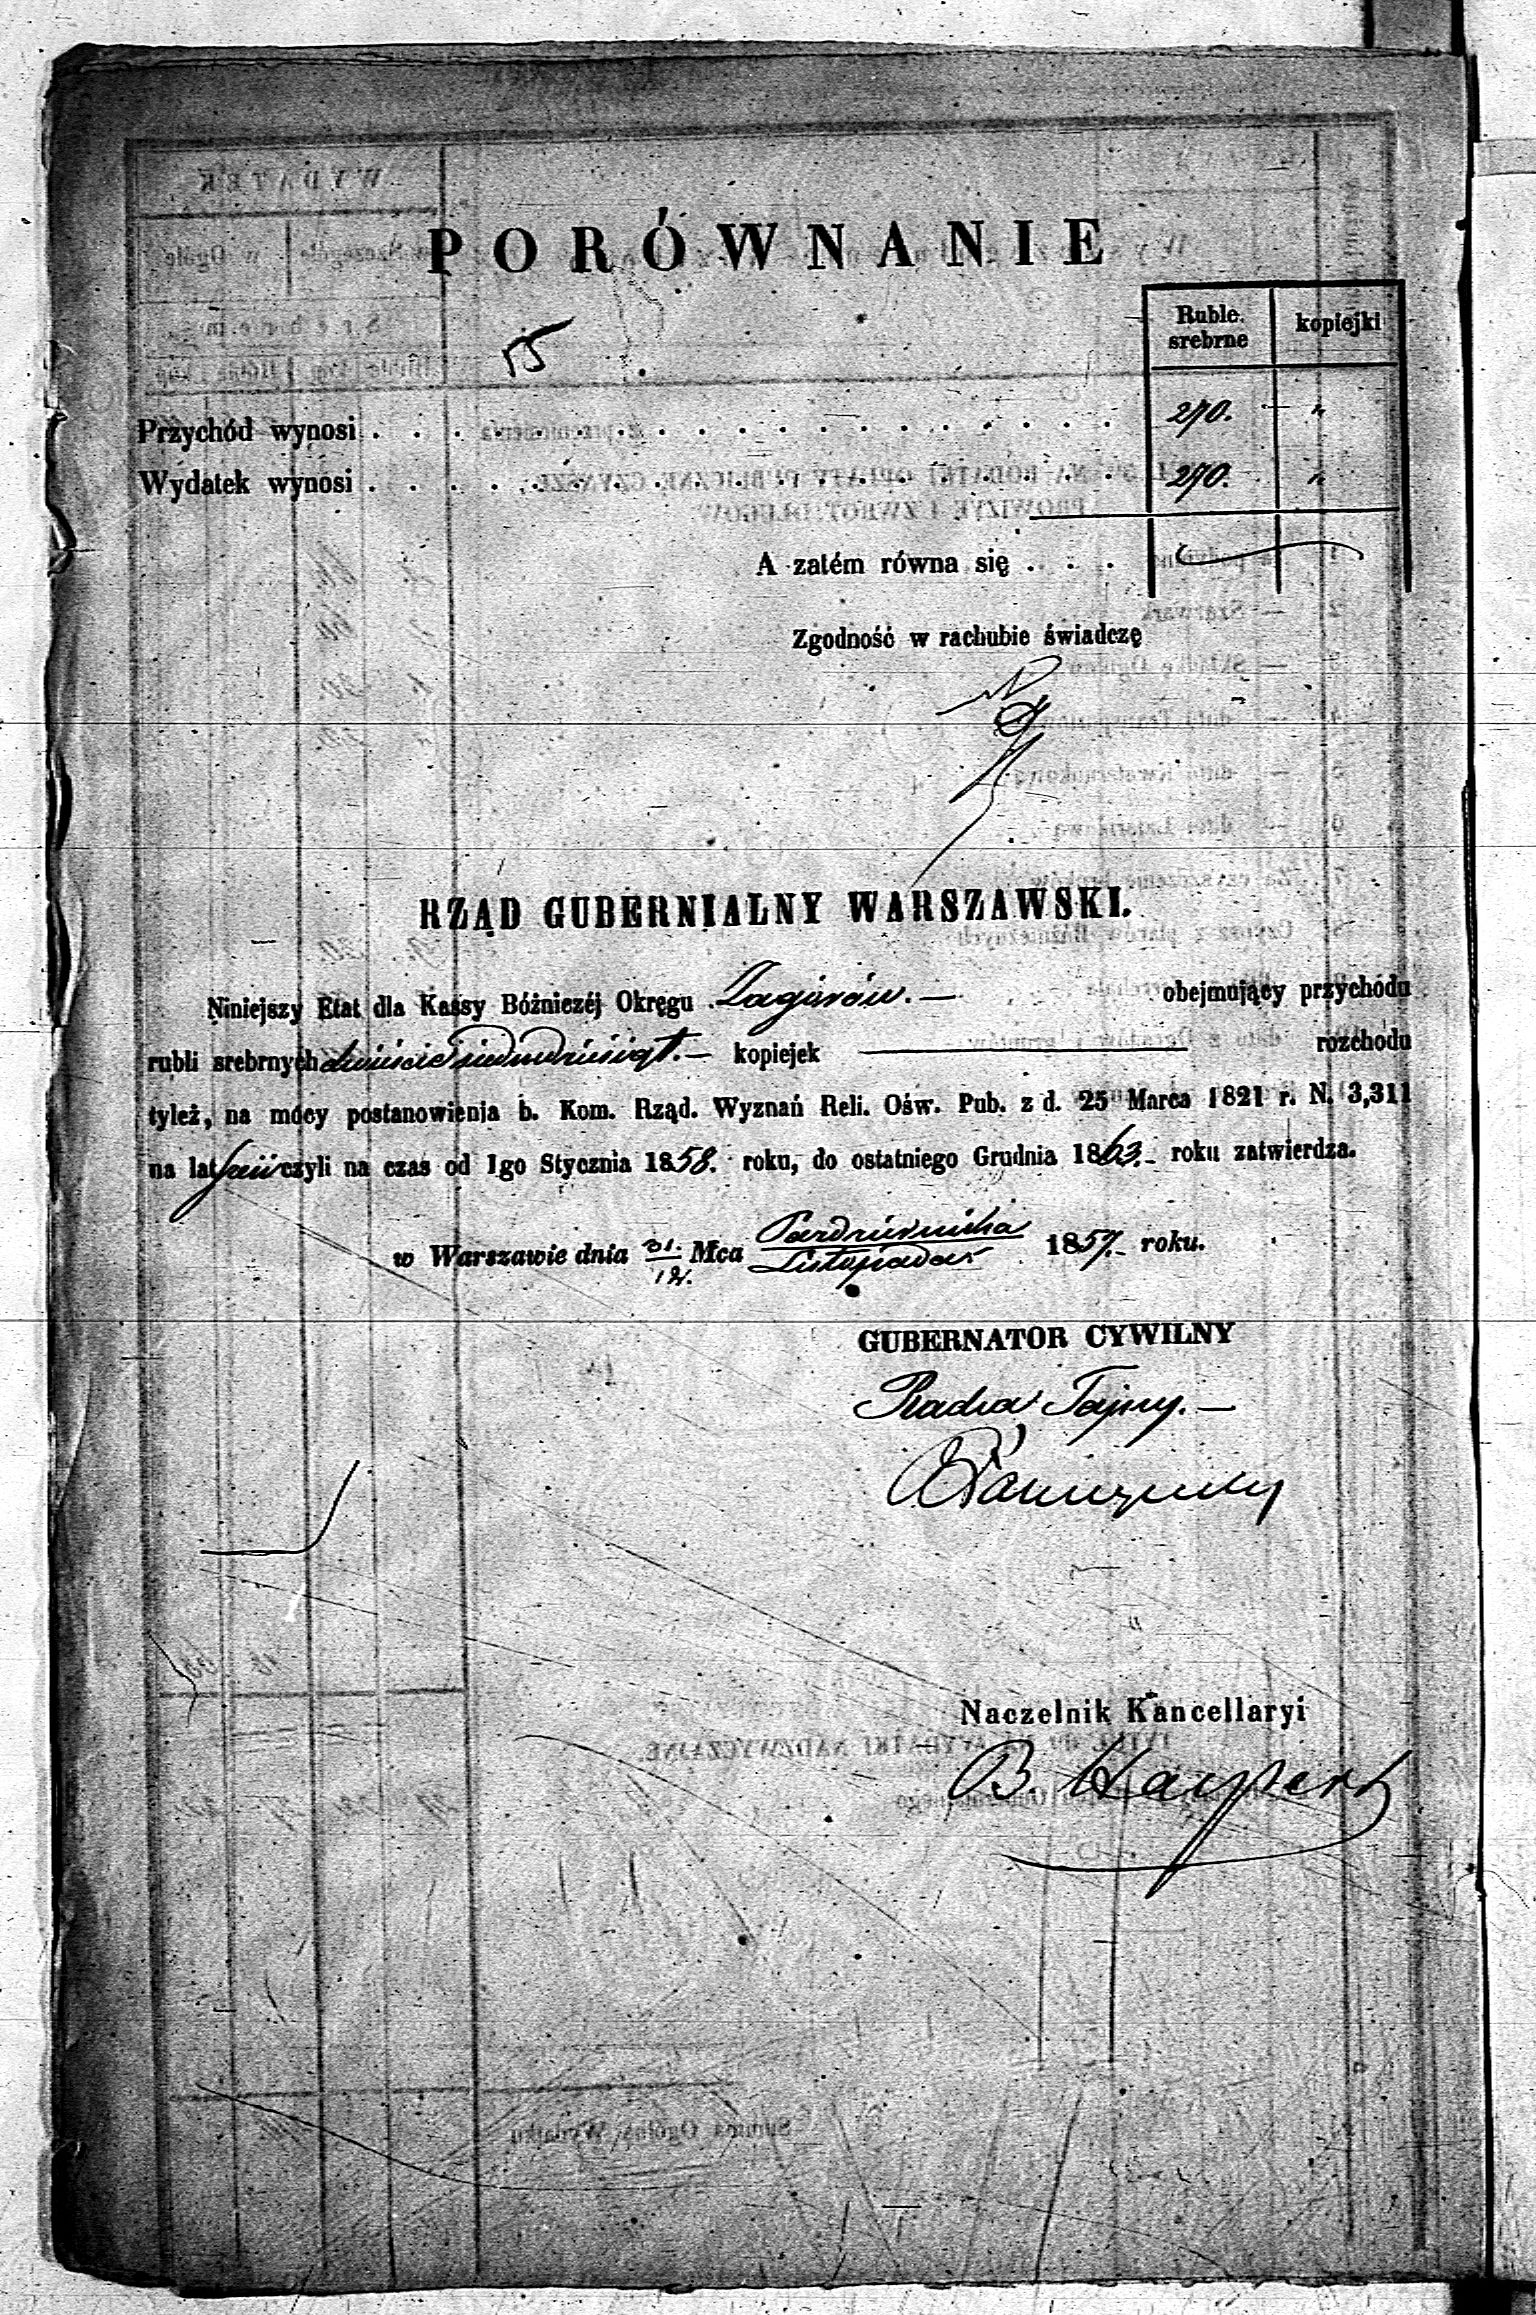 PORÓWNANIE
Ruble srebrne
kopiejki
15
Przychód wynosi . . . 270. "
Wydatek wynosi . . . 270. "
A zatém równa się . . .
Zgodność w rachubie świadczę
RZĄD GUBERNIALNY WARSZAWSKI.
Niniejszy Etat dla Kassy Bóźniczéj Okręgu Zagórów. — obejmujący przychodu
rubli srebrnych dwieście siedmdziesiąt. — kopiejek — rozchodu
tyleż, na mocy postanowienia b. Kom. Rząd. Wyznań Reli. Ośw. Pub. z d. 25 Marca 1821 r. N. 3,311
na lat sześć czyli na czas od 1go Stycznia 1858. roku, do ostatniego Grudnia 1863. roku zatwierdza.
w Warszawie dnia 31./12. Mca Października/Listopada 1857. roku.
GUBERNATOR CYWILNY
Radca Tajny. —
Naczelnik Kancellaryi
B. Halpert